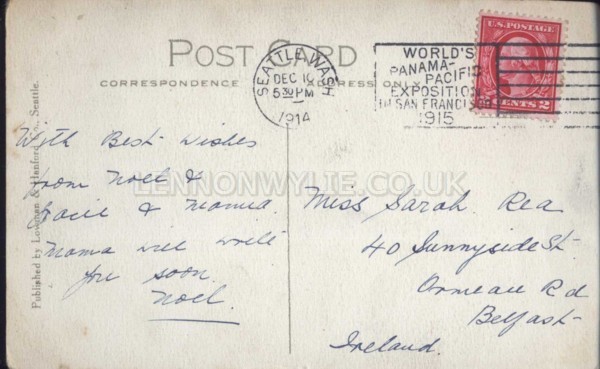 POST CARD
CORRESPONDENCE
ADDRESS ONLY
SEATTLE, WASH
DEC 10
5 30 PM
1914
WORLD'S
PANAMA-
PACIFIC
EXPOSITION
IN SAN FRANCISCO
1915
U.S. POSTAGE
CENTS 2
Published by Lowman & Hanford Co., Seattle.
With Best Wishes
from Noel &
& Mamma
Mama will write
you soon.
Noel.
Miss Sarah Rea
40 Sunnyside St
Ormeau Rd
Belfast
Ireland.
LENNONWYLIE.CO.UK